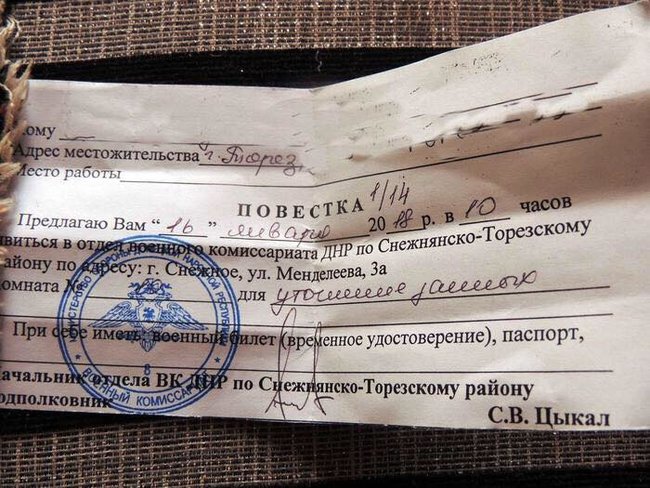 Кому
Адрес местожительства г. Торез
Место работы
ПОВЕСТКА 1/14
Предлагаю Вам "16" января 2018 г. в 10 часов
явиться в отдел военного комиссариата ДНР по Снежнянско-Торезскому
району по адресу: г. Снежное, ул. Менделеева, 3а
комната № для уточнение данных
При себе иметь: военный билет (временное удостоверение), паспорт,
Начальник отдела ВК ДНР по Снежнянско-Торезскому району
подполковник С.В. Цыкал
ВОЕННЫЙ КОМИССАРИАТ
8